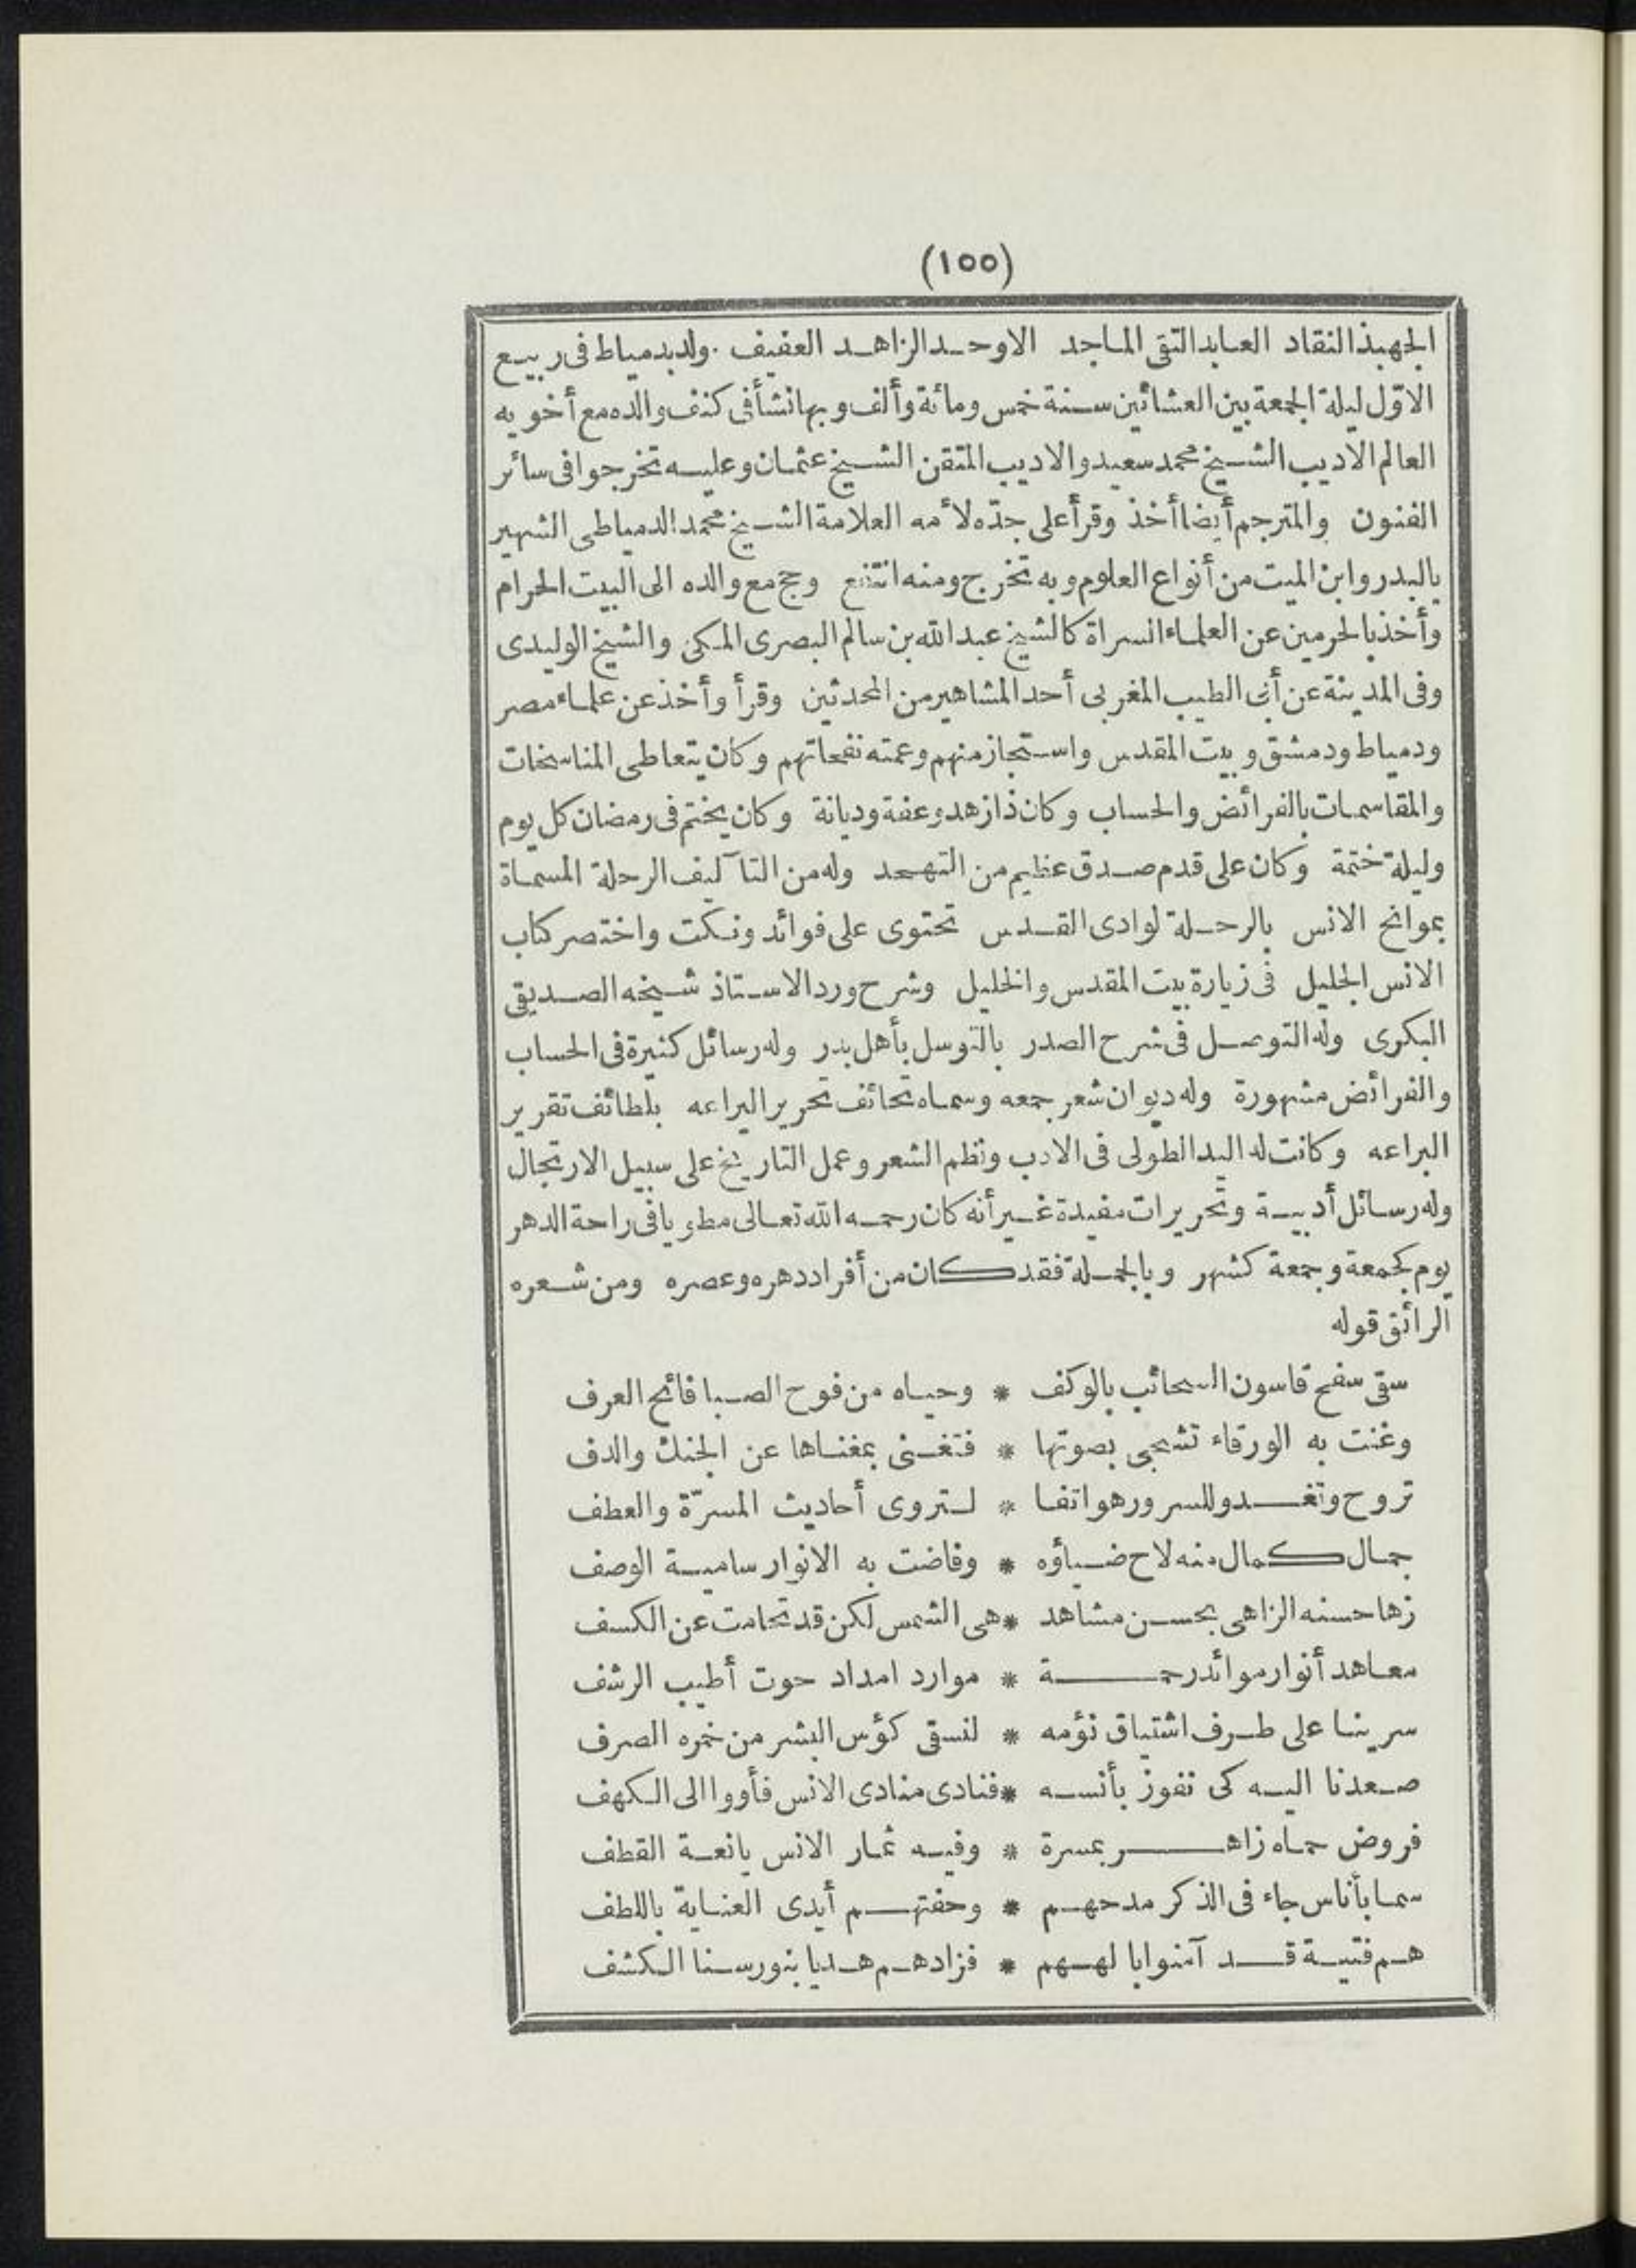 (١٥٥)
الجهبذ النقاد العابد التقى الماجد الاوحد الزاهد العفيف . ولد بدمياط فى ربيع
الاوّل ليلة الجمعة بين العشائين سنة خمس ومائة وألف وبها نشأ فى كنف والده مع أخويه
العالم الاديب الشيخ محمد سعيد والاديب المتقن الشيخ عثمان وعليه تخرجوا فى سائر
الفنون والمترجم أيضا أخذ وقرأ على جدّه لأمه العلامة الشيخ محمد الدمياطى الشهير
بالبدر وابن الميت من أنواع العلوم وبه تخرج ومنه انتفع وحج مع والده الى البيت الحرام
وأخذ بالحرمين عن العلماء السراة كالشيخ عبد الله بن سالم البصرى المكى والشيخ الوليدى
وفى المدينة عن أبى الطيب المغربى أحد المشاهير من المحدثين وقرأ وأخذ عن علماء مصر
ودمياط ودمشق وبيت المقدس واستجاز منهم وعمته نفحاتهم وكان يتعاطى المناسخات
والمقاسمات بالفرائض والحساب وكان ذا زهد وعفة وديانة وكان يختم فى رمضان كل يوم
وليلة ختمة وكان على قدم صدق عظيم من التهجد وله من التآليف الرحلة المسماة
بموانح الانس بالرحلة لوادى القدس تحتوى على فوائد ونكت واختصر كتاب
الانس الجليل فى زيارة بيت المقدس والخليل وشرح ورد الاستاذ شيخه الصديقى
البكرى وله التوصل فى شرح الصدر بالتوسل بأهل بدر وله رسائل كثيرة فى الحساب
والفرائض مشهورة وله ديوان شعر جمعه وسماه تحائف تحرير البراعه بلطائف تقرير
البراعه وكانت له اليد الطولى فى الادب ونظم الشعر وعمل التاريخ على سبيل الارتجال
وله رسائل أدبية وتحريرات مفيدة غير أنه كان رحمه الله تعالى مطويا فى راحة الدهر
يوم كجمعة وجمعة كشهر وبالجملة فقد كان من أفراد دهره وعصره ومن شعره
الرائق قوله
سقى سفح قاسون السحائب بالوكف * وحياه من فوح الصبا فائح العرف
وغنت به الورقاء تشجى بصوتها * فتغنى بمغناها عن الجنك والدف
تروح وتغدو للسرور هواتفا * لتروى أحاديث المسرّة والعطف
جمال كمال منه لاح ضياؤه * وفاضت به الانوار سامية الوصف
زها حسنه الزاهى بحسن مشاهد * هى الشمس لكن قد تحامت عن الكسف
معاهد أنوار موائد رحمة * موارد امداد حوت أطيب الرشف
سرينا على طرف اشتياق نؤمه * لنسقى كؤس البشر من خمره الصرف
صعدنا اليه كى نفوز بأنسه * فنادى منادى الانس فأووا الى الكهف
فروض حماه زاهر بمسرة * وفيه ثمار الانس يانعة القطف
سما بأناس جاء فى الذكر مدحهم * وحفتهم أيدى العناية باللطف
هم فتية قد آمنوا بالههم * فزادهم هديا بنور سنا الكشف